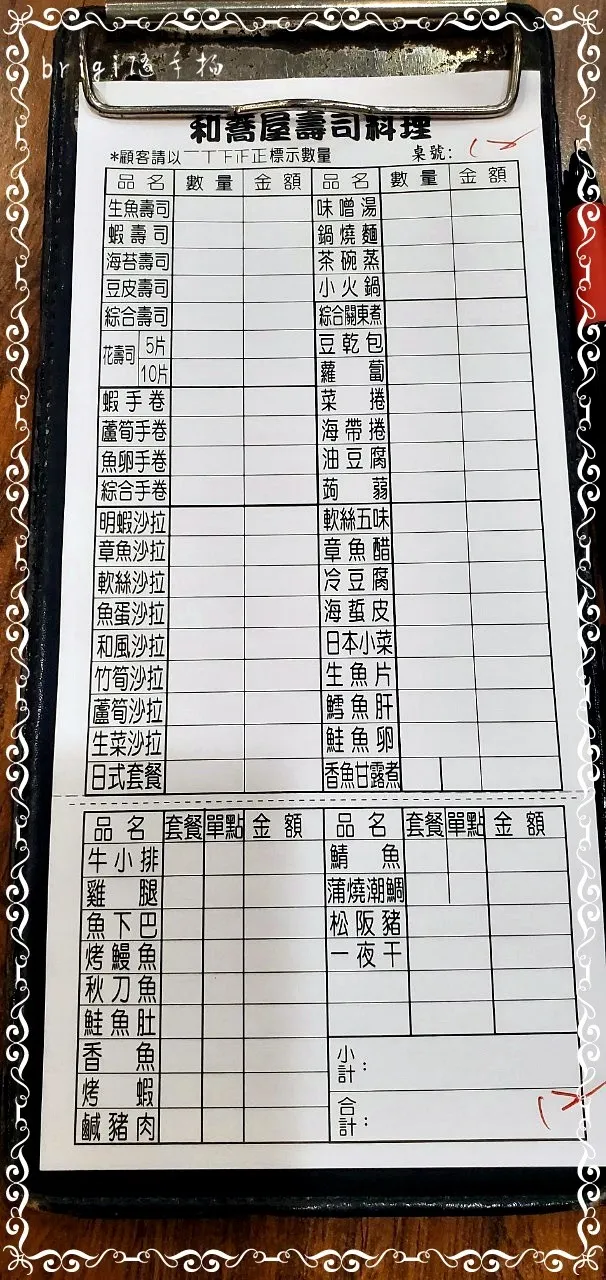 brigi隨手拍
和喬屋壽司料理
*顧客請以一丅下正正標示數量 桌號:
品名 數量 金額 品名 數量 金額
生魚壽司 味噌湯
蝦壽司 鍋燒麵
海苔壽司 茶碗蒸
豆皮壽司 小火鍋
綜合壽司 綜合關東煮
花壽司 5片 豆乾包
10片 蘿蔔
蝦手卷 菜捲
蘆筍手卷 海帶捲
魚卵手卷 油豆腐
綜合手卷 蒟蒻
明蝦沙拉 軟絲五味
章魚沙拉 章魚醋
軟絲沙拉 冷豆腐
魚蛋沙拉 海蜇皮
和風沙拉 日本小菜
竹筍沙拉 生魚片
蘆筍沙拉 鱈魚肝
生菜沙拉 鮭魚卵
日式套餐 香魚甘露煮
品名 套餐 單點 金額 品名 套餐 單點 金額
牛小排 鯖魚
雞腿 蒲燒潮鯛
魚下巴 松阪豬
烤鰻魚 一夜干
秋刀魚
鮭魚肚
香魚 小計:
烤蝦
鹹豬肉 合計: